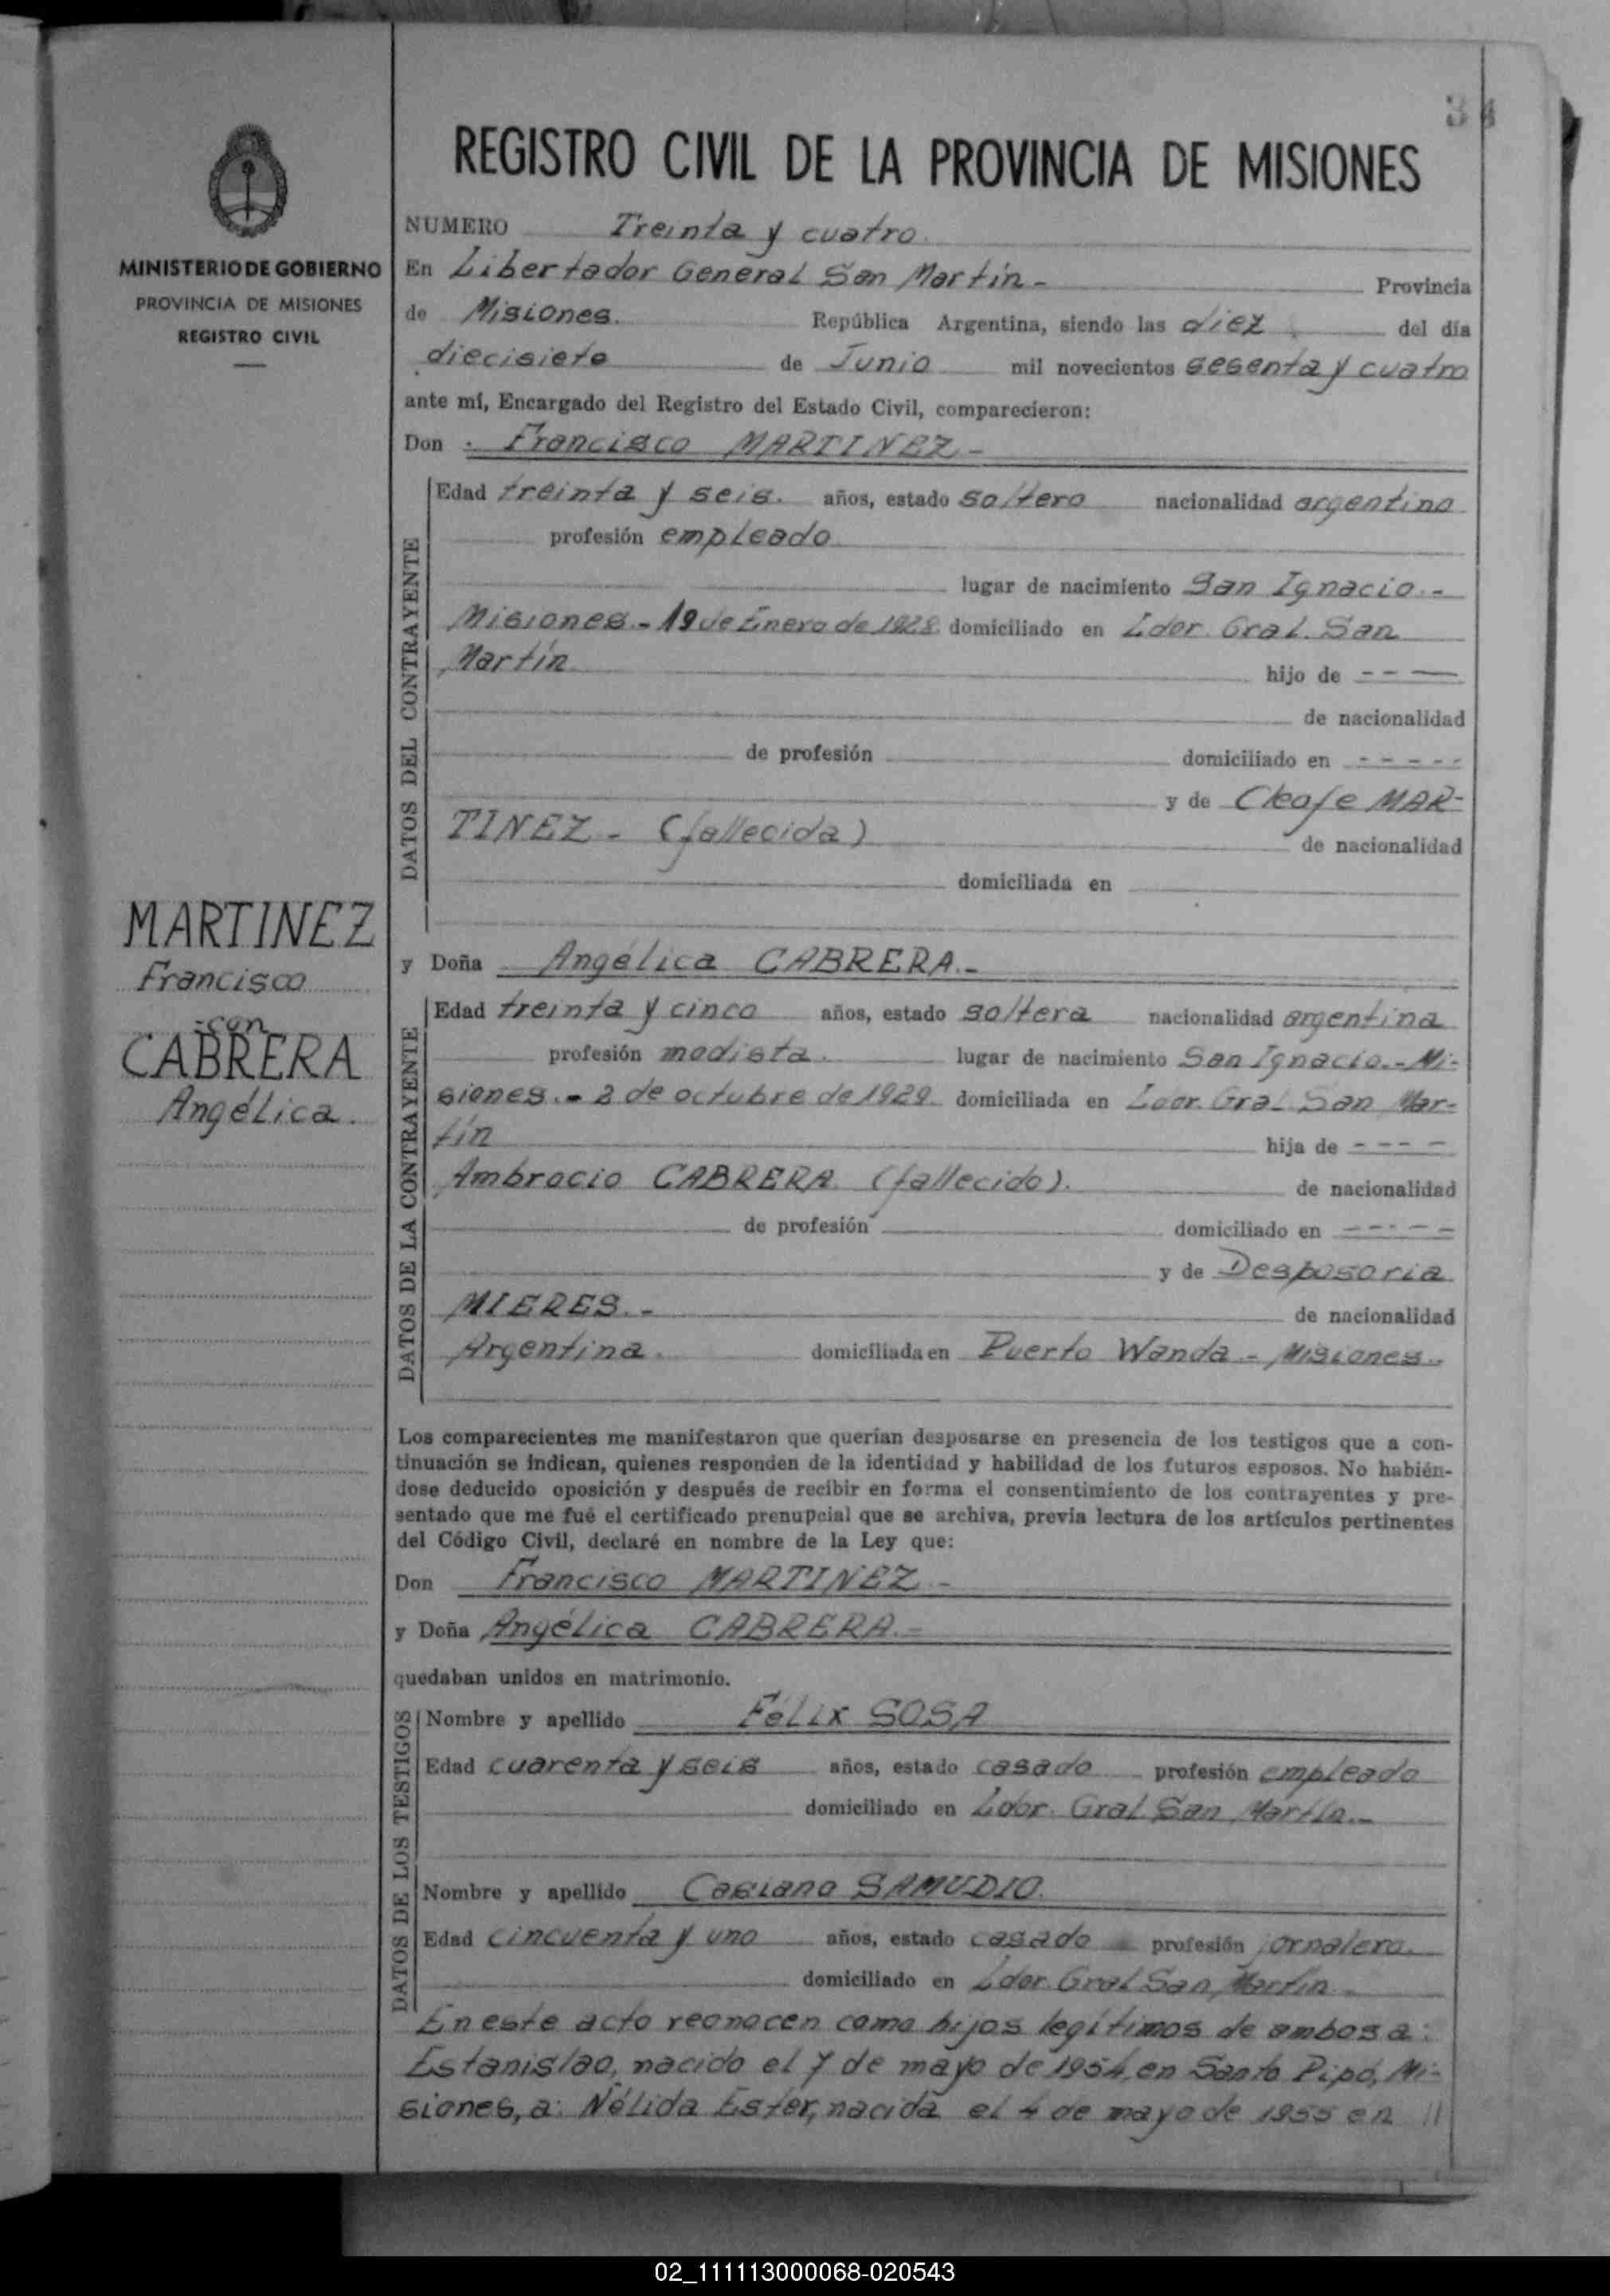 34
REGISTRO CIVIL DE LA PROVINCIA DE MISIONES
MINISTERIO DE GOBIERNO
PROVINCIA DE MISIONES
REGISTRO CIVIL
MARTINEZ
Francisco
-con
CABRERA
Angélica.
NUMERO Treinta y cuatro.
En Libertador General San Martín.- Provincia
de Misiones. República Argentina, siendo las diez del día
diecisiete de Junio mil novecientos sesenta y cuatro
ante mí, Encargado del Registro del Estado Civil, comparecieron:
Don Francisco MARTINEZ.-
DATOS DEL CONTRAYENTE
Edad treinta y seis. años, estado soltero nacionalidad argentino
profesión empleado
lugar de nacimiento San Ignacio.-
Misiones.- 19 de Enero de 1928. domiciliado en Ldor. Gral. San
Martín hijo de - - —
de nacionalidad
de profesión domiciliado en - - - - -
y de Cleofe MAR-
TINEZ.- (fallecida) de nacionalidad
domiciliada en
y Doña Angélica CABRERA.-
DATOS DE LA CONTRAYENTE
Edad treinta y cinco años, estado soltera nacionalidad argentina
profesión modista. lugar de nacimiento San Ignacio.- Mi-
siones.- 2 de octubre de 1929 domiciliada en Ldor. Gral San Mar-
tín hija de - - - -
Ambrocio CABRERA (fallecido). de nacionalidad
de profesión domiciliado en - - - - -
y de Desposoria
MIERES.- de nacionalidad
Argentina. domiciliada en Puerto Wanda - Misiones.-
Los comparecientes me manifestaron que querían desposarse en presencia de los testigos que a con-
tinuación se indican, quienes responden de la identidad y habilidad de los futuros esposos. No habién-
dose deducido oposición y después de recibir en forma el consentimiento de los contrayentes y pre-
sentado que me fué el certificado prenupcial que se archiva, previa lectura de los artículos pertinentes
del Código Civil, declaré en nombre de la Ley que:
Don Francisco MARTINEZ.-
y Doña Angélica CABRERA.-
quedaban unidos en matrimonio.
DATOS DE LOS TESTIGOS
Nombre y apellido Félix SOSA
Edad cuarenta y seis años, estado casado profesión empleado
domiciliado en Ldor. Gral San Martín.-
Nombre y apellido Casiano SAMUDIO.
Edad cincuenta y uno años, estado casado profesión jornalero.
domiciliado en Ldor. Gral San Martín
En este acto reonocen como hijos legítimos de ambos a:
Estanislao, nacido el 7 de mayo de 1954, en Santo Pipó, Mi-
siones, a: Nélida Ester, nacida el 4 de mayo de 1955 en //
02_111113000068-020543